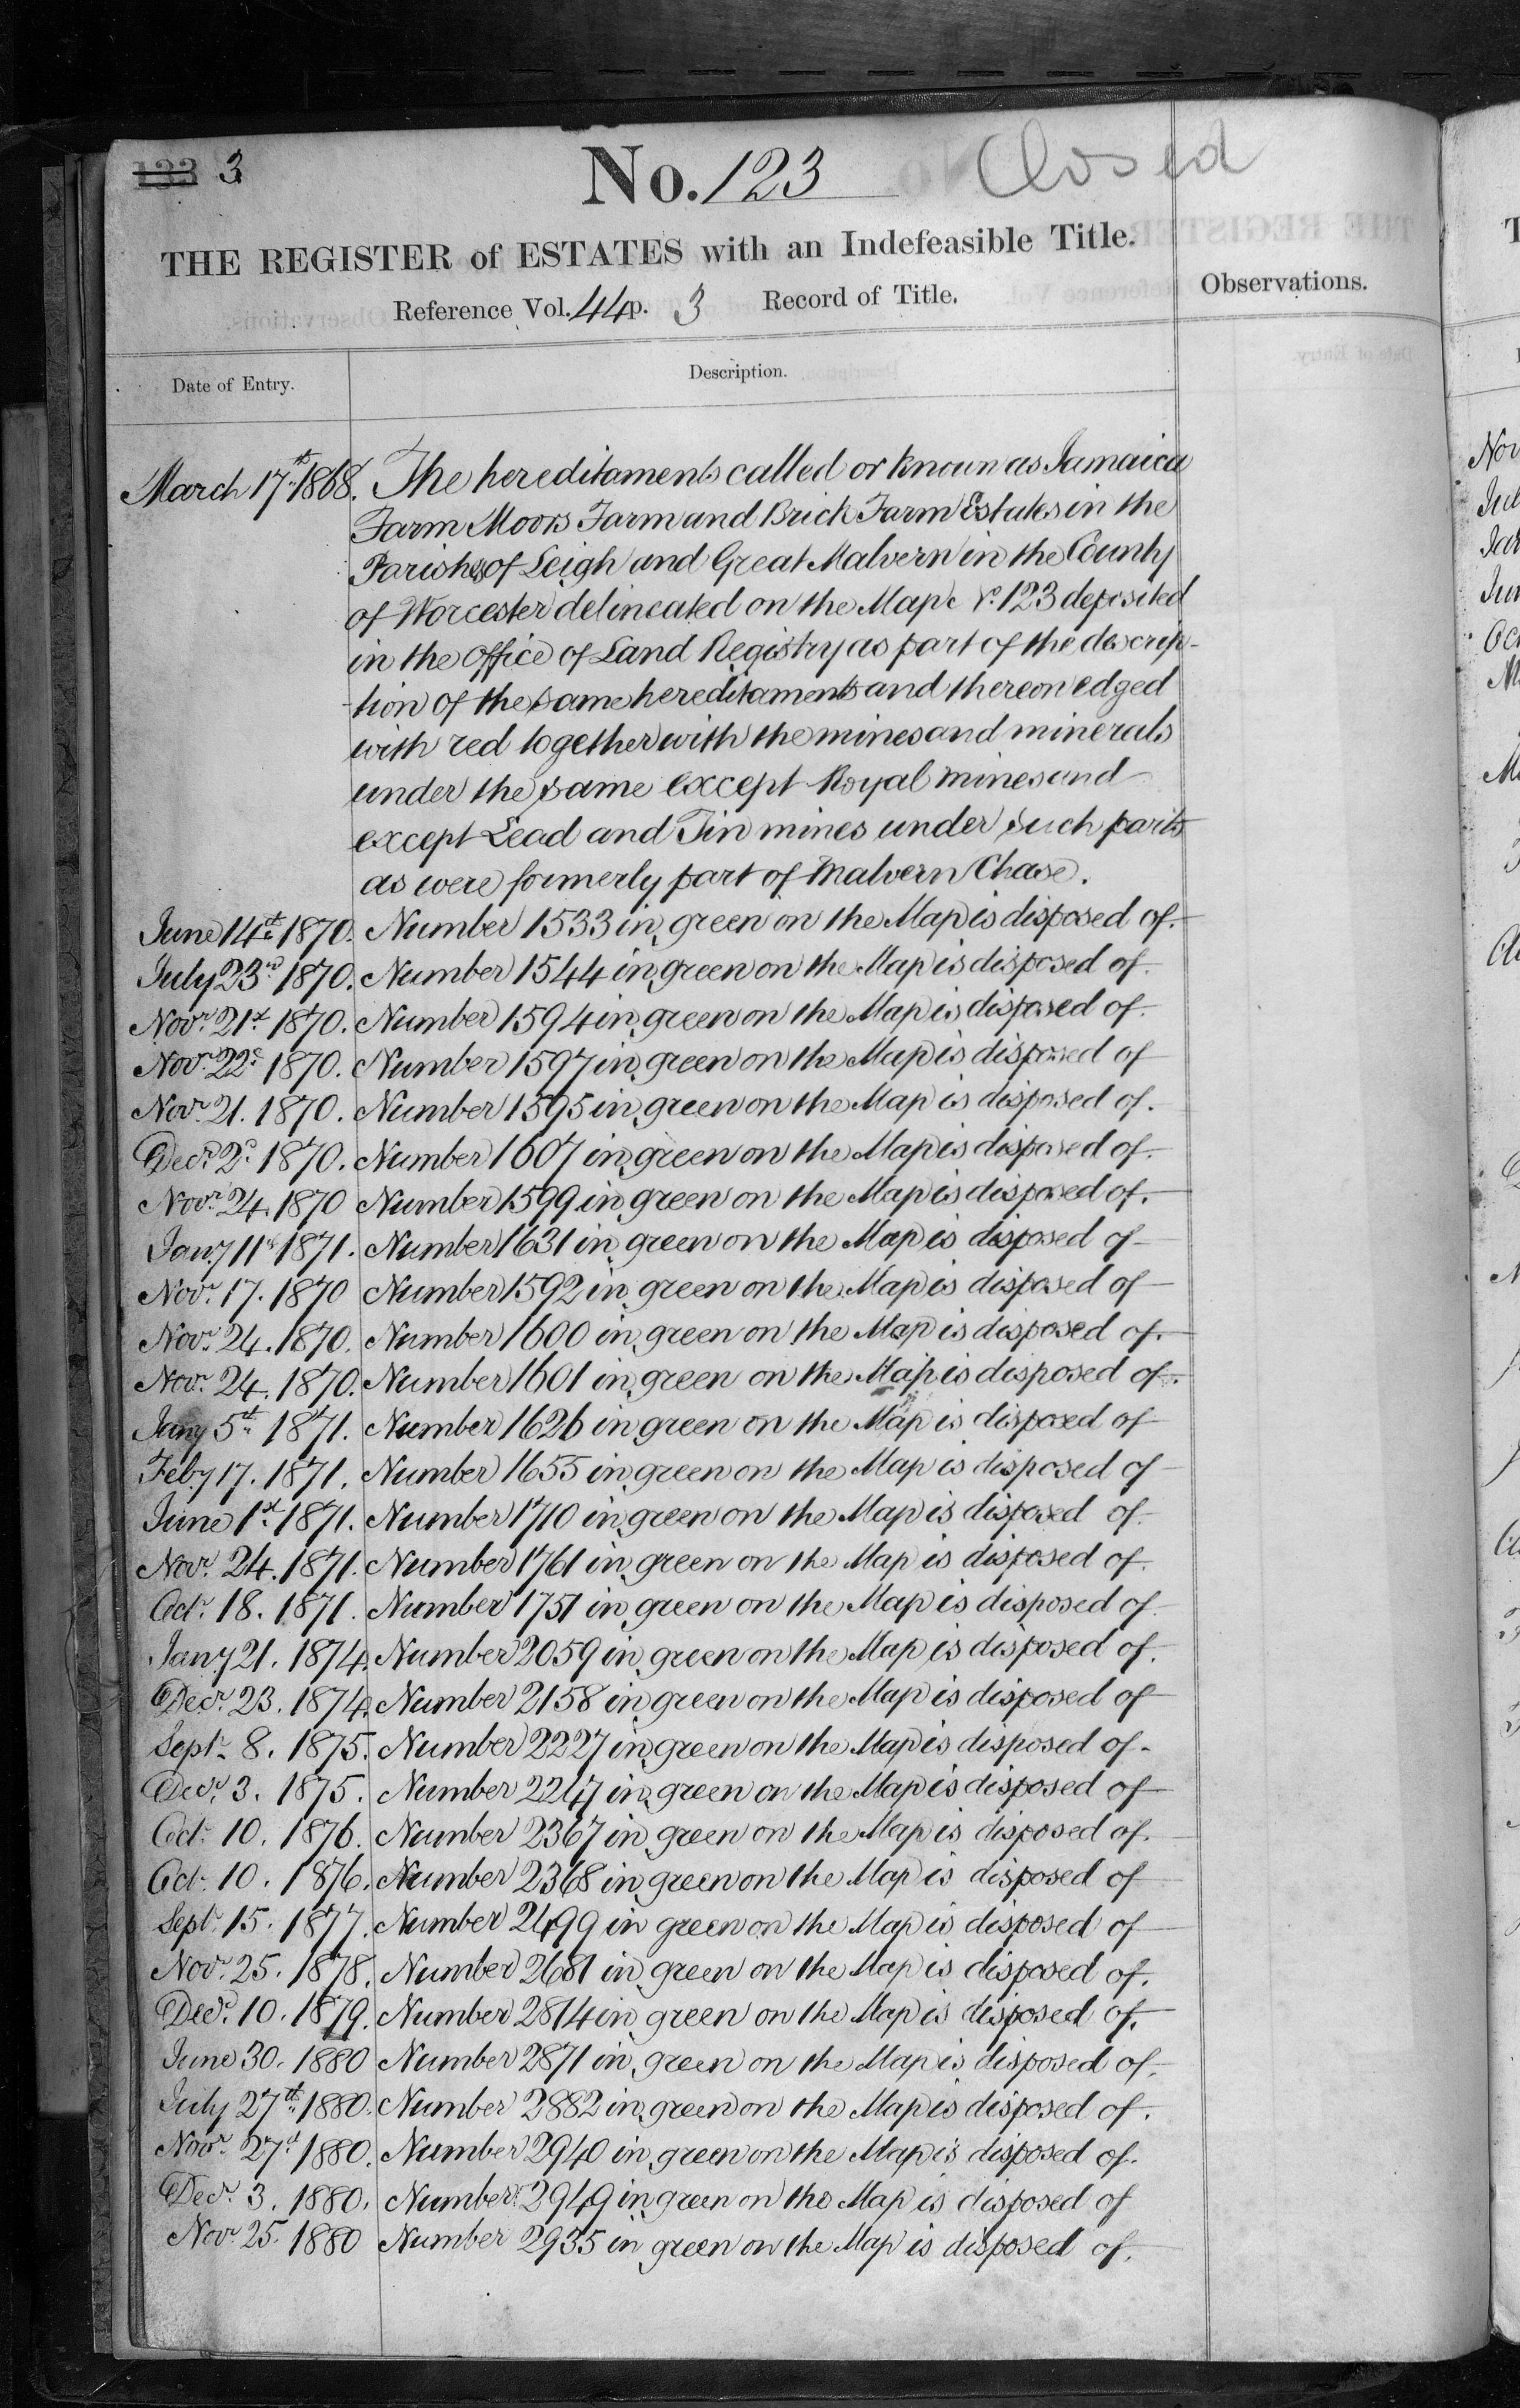 133 3
No. 123 Closed
THE REGISTER of ESTATES with an Indefeasible Title.
Reference Vol. 44 p. 3 Record of Title.
Observations.
Date of Entry. Description.
March 17th 1868. The hereditaments called or known as Jamaica
Farm Moors Farm and Brick Farm Estates in the
Parishes of Leigh and Great Malvern in the County
of Worcester delineated on the Map No. 123 deposited
in the Office of Land Registry as part of the descrip-
-tion of the same hereditaments and thereon edged
with red together with the mines and minerals
under the same except Royal mines and
except Lead and Tin mines under such parts
as were formerly part of Malvern Chase.
June 14th 1870. Number 1533 in green on the Map is disposed of.
July 23rd 1870. Number 1544 in green on the Map is disposed of.
Novr. 21st 1870. Number 1594 in green on the Map is disposed of.
Novr. 22d 1870. Number 1597 in green on the Map is disposed of
Novr. 21. 1870. Number 1595 in green on the Map is disposed of.
Decr. 2d 1870. Number 1607 in green on the Map is disposed of.
Novr. 24. 1870 Number 1599 in green on the Map is disposed of.
Jany 11th 1871. Number 1631 in green on the Map is disposed of
Novr. 17. 1870 Number 1592 in green on the Map is disposed of
Novr. 24. 1870. Number 1600 in green on the Map is disposed of.
Novr. 24. 1870. Number 1601 in green on the Map is disposed of.
Jany 5th 1871. Number 1626 in green on the Map is disposed of
Feby 17. 1871. Number 1655 in green on the Map is disposed of
June 1st 1871. Number 1710 in green on the Map is disposed of.
Novr. 24. 1871. Number 1761 in green on the Map is disposed of.
Octr. 18. 1871. Number 1751 in green on the Map is disposed of.
Jany 21. 1874. Number 2059 in green on the Map is disposed of.
Decr. 23. 1874. Number 2158 in green on the Map is disposed of
Septr. 8. 1875. Number 2227 in green on the Map is disposed of.
Decr. 3. 1875. Number 2247 in green on the Map is disposed of
Octr. 10. 1876. Number 2367 in green on the Map is disposed of.
Octr. 10. 1876. Number 2368 in green on the Map is disposed of
Septr. 15. 1877. Number 2499 in green on the Map is disposed of
Novr. 25. 1878. Number 2681 in green on the Map is disposed of.
Decr. 10. 1879. Number 2814 in green on the Map is disposed of.
June 30. 1880 Number 2871 in green on the Map is disposed of.
July 27th 1880. Number 2882 in green on the Map is disposed of.
Novr. 27th 1880. Number 2940 in green on the Map is disposed of.
Decr. 3. 1880. Number 2949 in green on the Map is disposed of
Novr. 25. 1880 Number 2935 in green on the Map is disposed of.